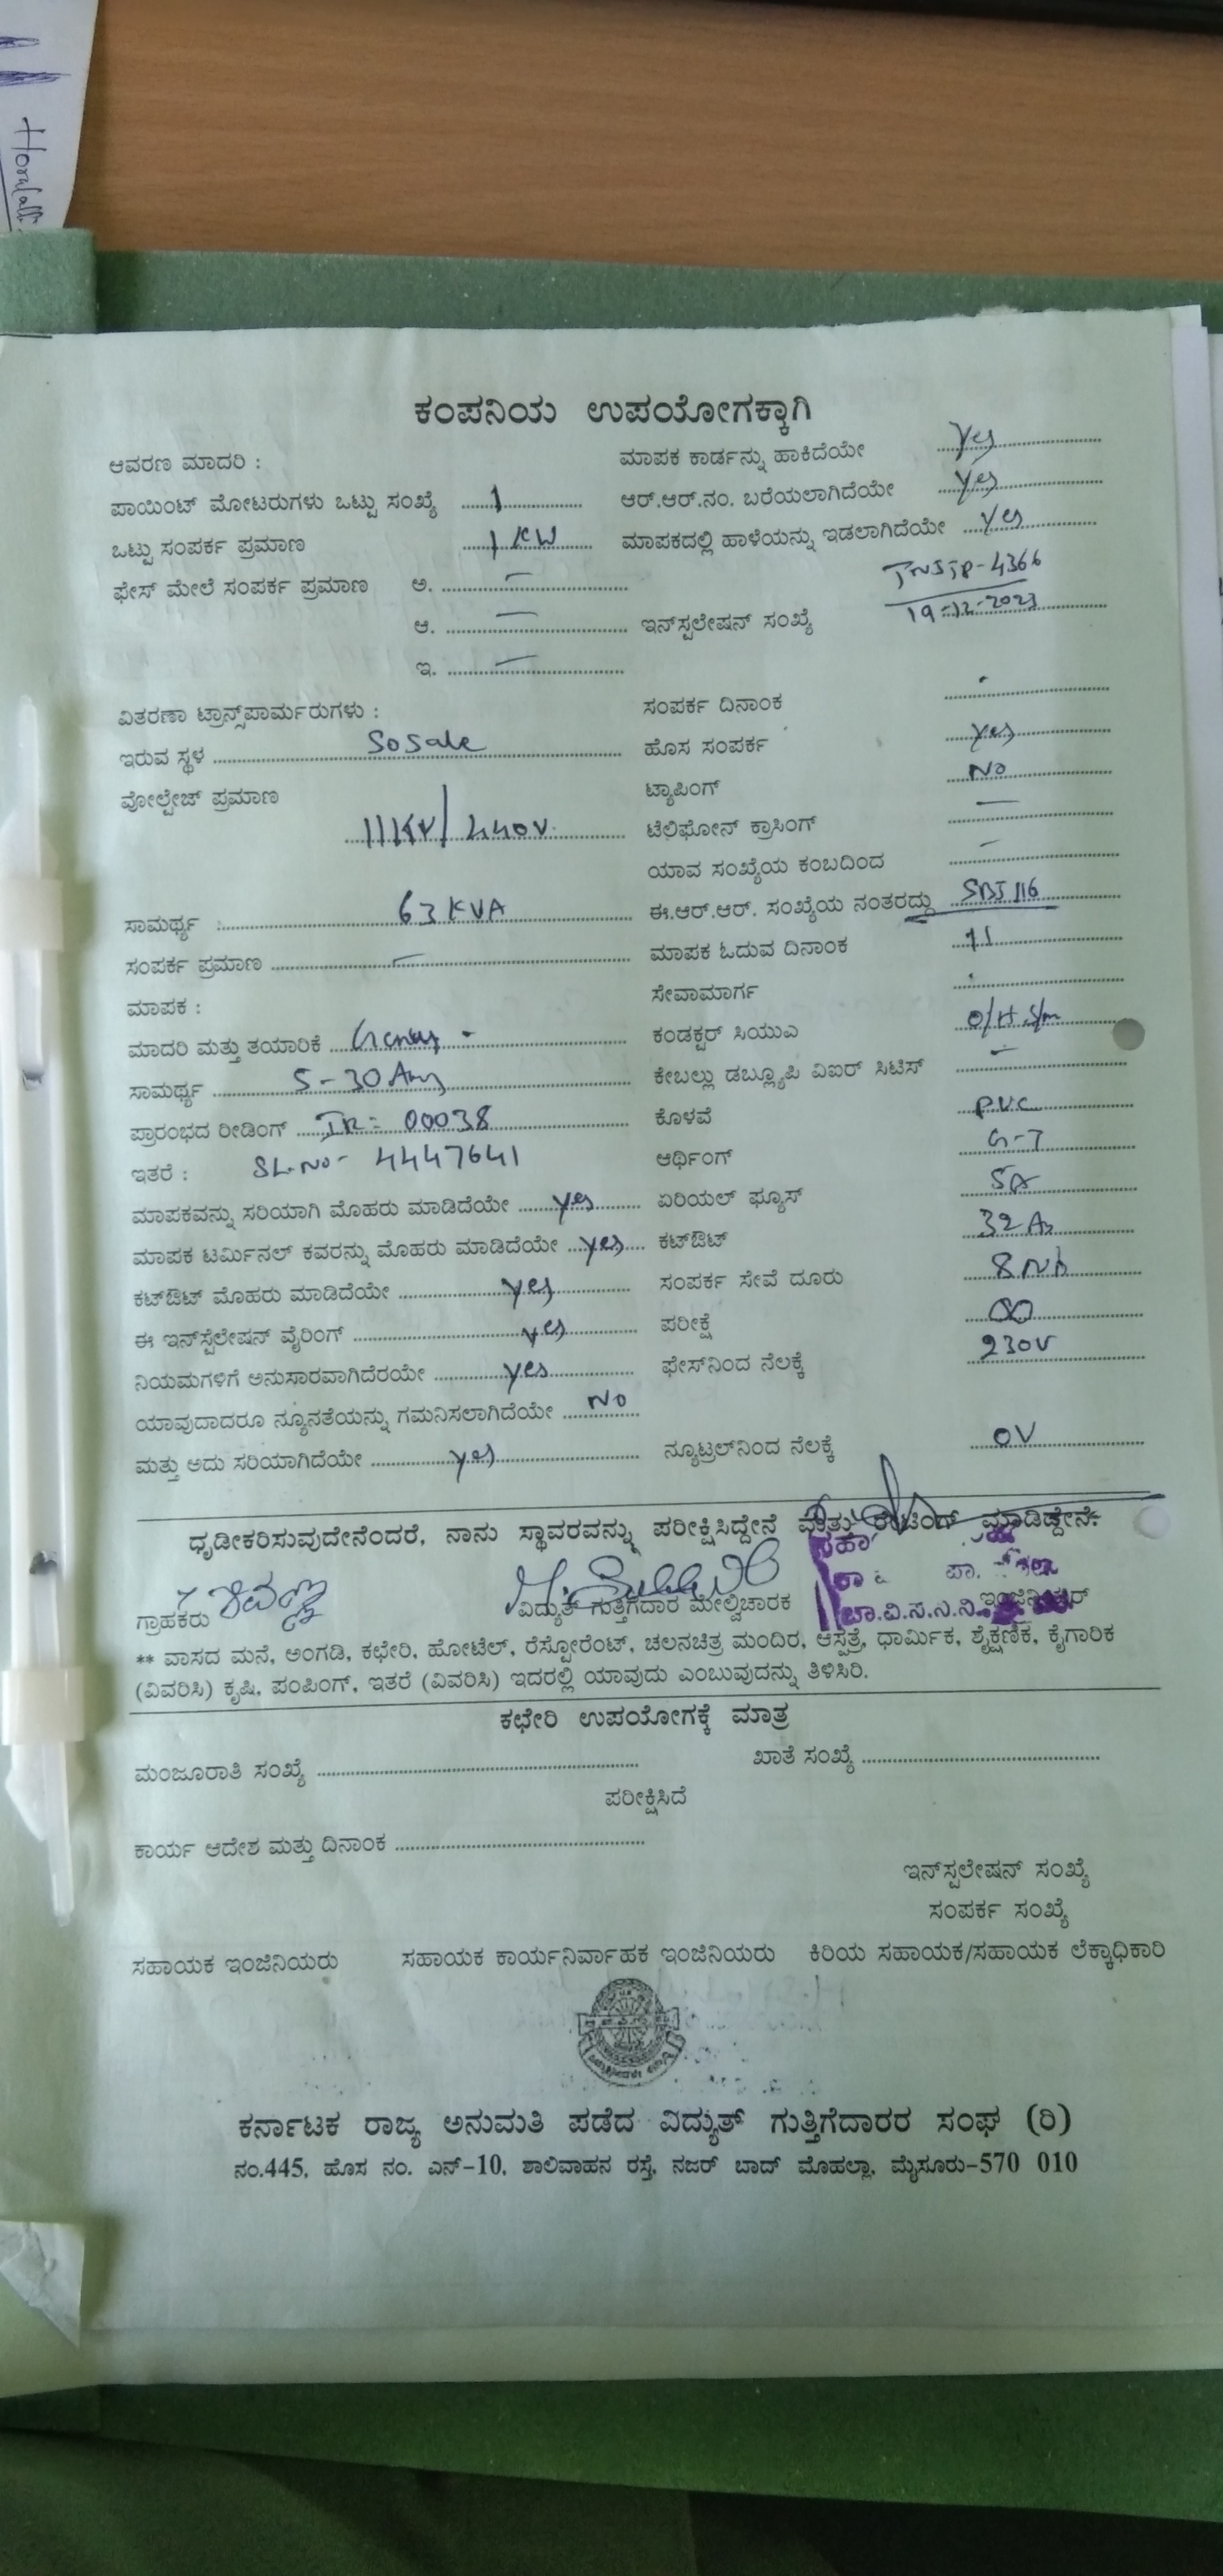 ಕಂಪನಿಯ ಉಪಯೋಗಕ್ಕಾಗಿ
ಆವರಣ ಮಾದರಿ : ಮಾಪಕ ಕಾರ್ಡನ್ನು ಹಾಕಿದೆಯೇ Yes
ಪಾಯಿಂಟ್ ಮೋಟರುಗಳು ಒಟ್ಟು ಸಂಖ್ಯೆ 1 ಆರ್.ಆರ್.ನಂ. ಬರೆಯಲಾಗಿದೆಯೇ Yes
ಒಟ್ಟು ಸಂಪರ್ಕ ಪ್ರಮಾಣ 1 KW ಮಾಪಕದಲ್ಲಿ ಹಾಳೆಯನ್ನು ಇಡಲಾಗಿದೆಯೇ Yes
ಫೇಸ್ ಮೇಲೆ ಸಂಪರ್ಕ ಪ್ರಮಾಣ ಅ. –
ಆ. – ಇನ್‌ಸ್ಪಲೇಷನ್ ಸಂಖ್ಯೆ 19-12-2023
ಇ. –
ವಿತರಣಾ ಟ್ರಾನ್ಸ್‌ಪಾರ್ಮರುಗಳು : ಸಂಪರ್ಕ ದಿನಾಂಕ
ಇರುವ ಸ್ಥಳ Sosale ಹೊಸ ಸಂಪರ್ಕ Yes
ವೋಲ್ಟೇಜ್ ಪ್ರಮಾಣ 11KV/440V ಟ್ಯಾಪಿಂಗ್ No
ಟೆಲಿಫೋನ್ ಕ್ರಾಸಿಂಗ್ –
ಯಾವ ಸಂಖ್ಯೆಯ ಕಂಬದಿಂದ –
ಸಾಮರ್ಥ್ಯ : 63 KVA ಈ.ಆರ್.ಆರ್. ಸಂಖ್ಯೆಯ ನಂತರದ್ದು SBJ 116
ಸಂಪರ್ಕ ಪ್ರಮಾಣ – ಮಾಪಕ ಓದುವ ದಿನಾಂಕ 11
ಮಾಪಕ : ಸೇವಾಮಾರ್ಗ
ಮಾದರಿ ಮತ್ತು ತಯಾರಿಕೆ ಕಂಡಕ್ಟರ್ ಸಿಯುಎ O/H
ಸಾಮರ್ಥ್ಯ 5-30 ಕೇಬಲ್ಲು ಡಬ್ಲ್ಯೂಪಿ ವಿಐರ್ ಸಿಟಿಸ್ –
ಪ್ರಾರಂಭದ ರೀಡಿಂಗ್ IR= 00038 ಕೊಳವೆ PVC
ಇತರೆ : SL.No- 4447641 ಆರ್ಥಿಂಗ್ G-7
ಮಾಪಕವನ್ನು ಸರಿಯಾಗಿ ಮೊಹರು ಮಾಡಿದೆಯೇ yes ಏರಿಯಲ್ ಫ್ಯೂಸ್ 5A
ಮಾಪಕ ಟರ್ಮಿನಲ್ ಕವರನ್ನು ಮೊಹರು ಮಾಡಿದೆಯೇ yes ಕಟ್‌ಔಟ್ 32
ಕಟ್‌ಔಟ್ ಮೊಹರು ಮಾಡಿದೆಯೇ yes ಸಂಪರ್ಕ ಸೇವೆ ದೂರು
ಈ ಇನ್‌ಸ್ಪೆಲೇಷನ್ ವೈರಿಂಗ್ yes ಪರೀಕ್ಷೆ ∞
ನಿಯಮಗಳಿಗೆ ಅನುಸಾರವಾಗಿದೆರಯೇ yes ಫೇಸ್‌ನಿಂದ ನೆಲಕ್ಕೆ 230V
ಯಾವುದಾದರೂ ನ್ಯೂನತೆಯನ್ನು ಗಮನಿಸಲಾಗಿದೆಯೇ No
ಮತ್ತು ಅದು ಸರಿಯಾಗಿದೆಯೇ yes ನ್ಯೂಟ್ರಲ್‌ನಿಂದ ನೆಲಕ್ಕೆ 0V
ಧೃಡೀಕರಿಸುವುದೇನೆಂದರೆ, ನಾನು ಸ್ಥಾವರವನ್ನು ಪರೀಕ್ಷಿಸಿದ್ದೇನೆ ಮತ್ತು ರೇಟಿಂಗ್ ಮಾಡಿದ್ದೇನೆ.
ಗ್ರಾಹಕರು ವಿದ್ಯುತ್ ಗುತ್ತಿಗೆದಾರ ಮೇಲ್ವಿಚಾರಕ ಇಂಜಿನಿಯರ್
** ವಾಸದ ಮನೆ, ಅಂಗಡಿ, ಕಛೇರಿ, ಹೋಟೆಲ್, ರೆಸ್ಟೋರೆಂಟ್, ಚಲನಚಿತ್ರ ಮಂದಿರ, ಆಸ್ಪತ್ರೆ, ಧಾರ್ಮಿಕ, ಶೈಕ್ಷಣಿಕ, ಕೈಗಾರಿಕ
(ವಿವರಿಸಿ) ಕೃಷಿ, ಪಂಪಿಂಗ್, ಇತರೆ (ವಿವರಿಸಿ) ಇದರಲ್ಲಿ ಯಾವುದು ಎಂಬುವುದನ್ನು ತಿಳಿಸಿರಿ.
ಕಛೇರಿ ಉಪಯೋಗಕ್ಕೆ ಮಾತ್ರ
ಮಂಜೂರಾತಿ ಸಂಖ್ಯೆ ಖಾತೆ ಸಂಖ್ಯೆ
ಪರೀಕ್ಷಿಸಿದೆ
ಕಾರ್ಯ ಆದೇಶ ಮತ್ತು ದಿನಾಂಕ
ಇನ್‌ಸ್ಪಲೇಷನ್ ಸಂಖ್ಯೆ
ಸಂಪರ್ಕ ಸಂಖ್ಯೆ
ಸಹಾಯಕ ಇಂಜಿನಿಯರು ಸಹಾಯಕ ಕಾರ್ಯನಿರ್ವಾಹಕ ಇಂಜಿನಿಯರು ಕಿರಿಯ ಸಹಾಯಕ/ಸಹಾಯಕ ಲೆಕ್ಕಾಧಿಕಾರಿ
ಕರ್ನಾಟಕ ರಾಜ್ಯ ಅನುಮತಿ ಪಡೆದ ವಿದ್ಯುತ್ ಗುತ್ತಿಗೆದಾರರ ಸಂಘ (ರಿ)
ನಂ.445, ಹೊಸ ನಂ. ಎನ್-10, ಶಾಲಿವಾಹನ ರಸ್ತೆ, ನಜರ್ ಬಾದ್ ಮೊಹಲ್ಲಾ, ಮೈಸೂರು-570 010